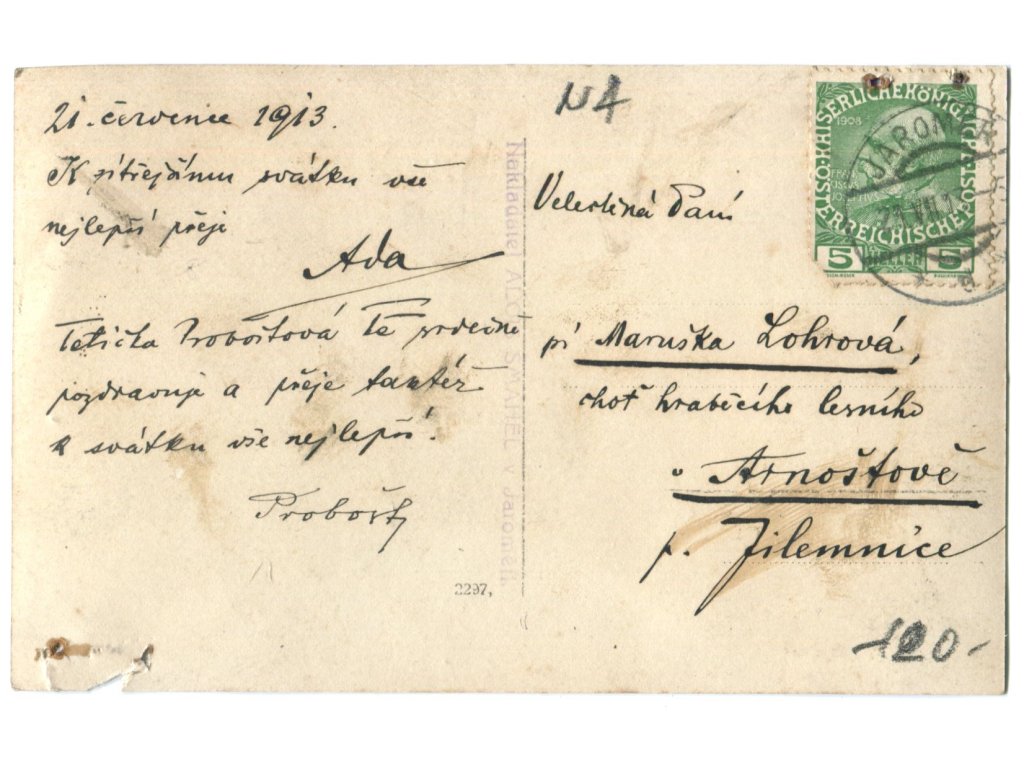 21. července 1913.
K zítřejšímu svátku vše
nejlepší přeje
Ada
Tetička Proboštová Tě srdečně
pozdravuje a přeje taktéž
k svátku vše nejlepší!
Probošt
2297,
Nakladatel ALX. ŠMAHEL v Jaroměři.
N4
Velectěná Paní
pí Maruška Lohrová,
choť hraběcího lesního
v Arnoštově
p. Jilemnice
120-
KAISERLICHE KÖNIGLICHE ÖSTERREICHISCHE POST
1908
5 HELLER 5
JAROMĚŘ
VII